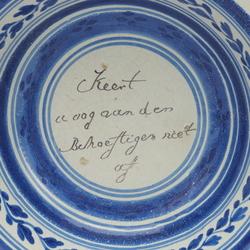 Keert
u oog van den
Behoeftigen niet
af